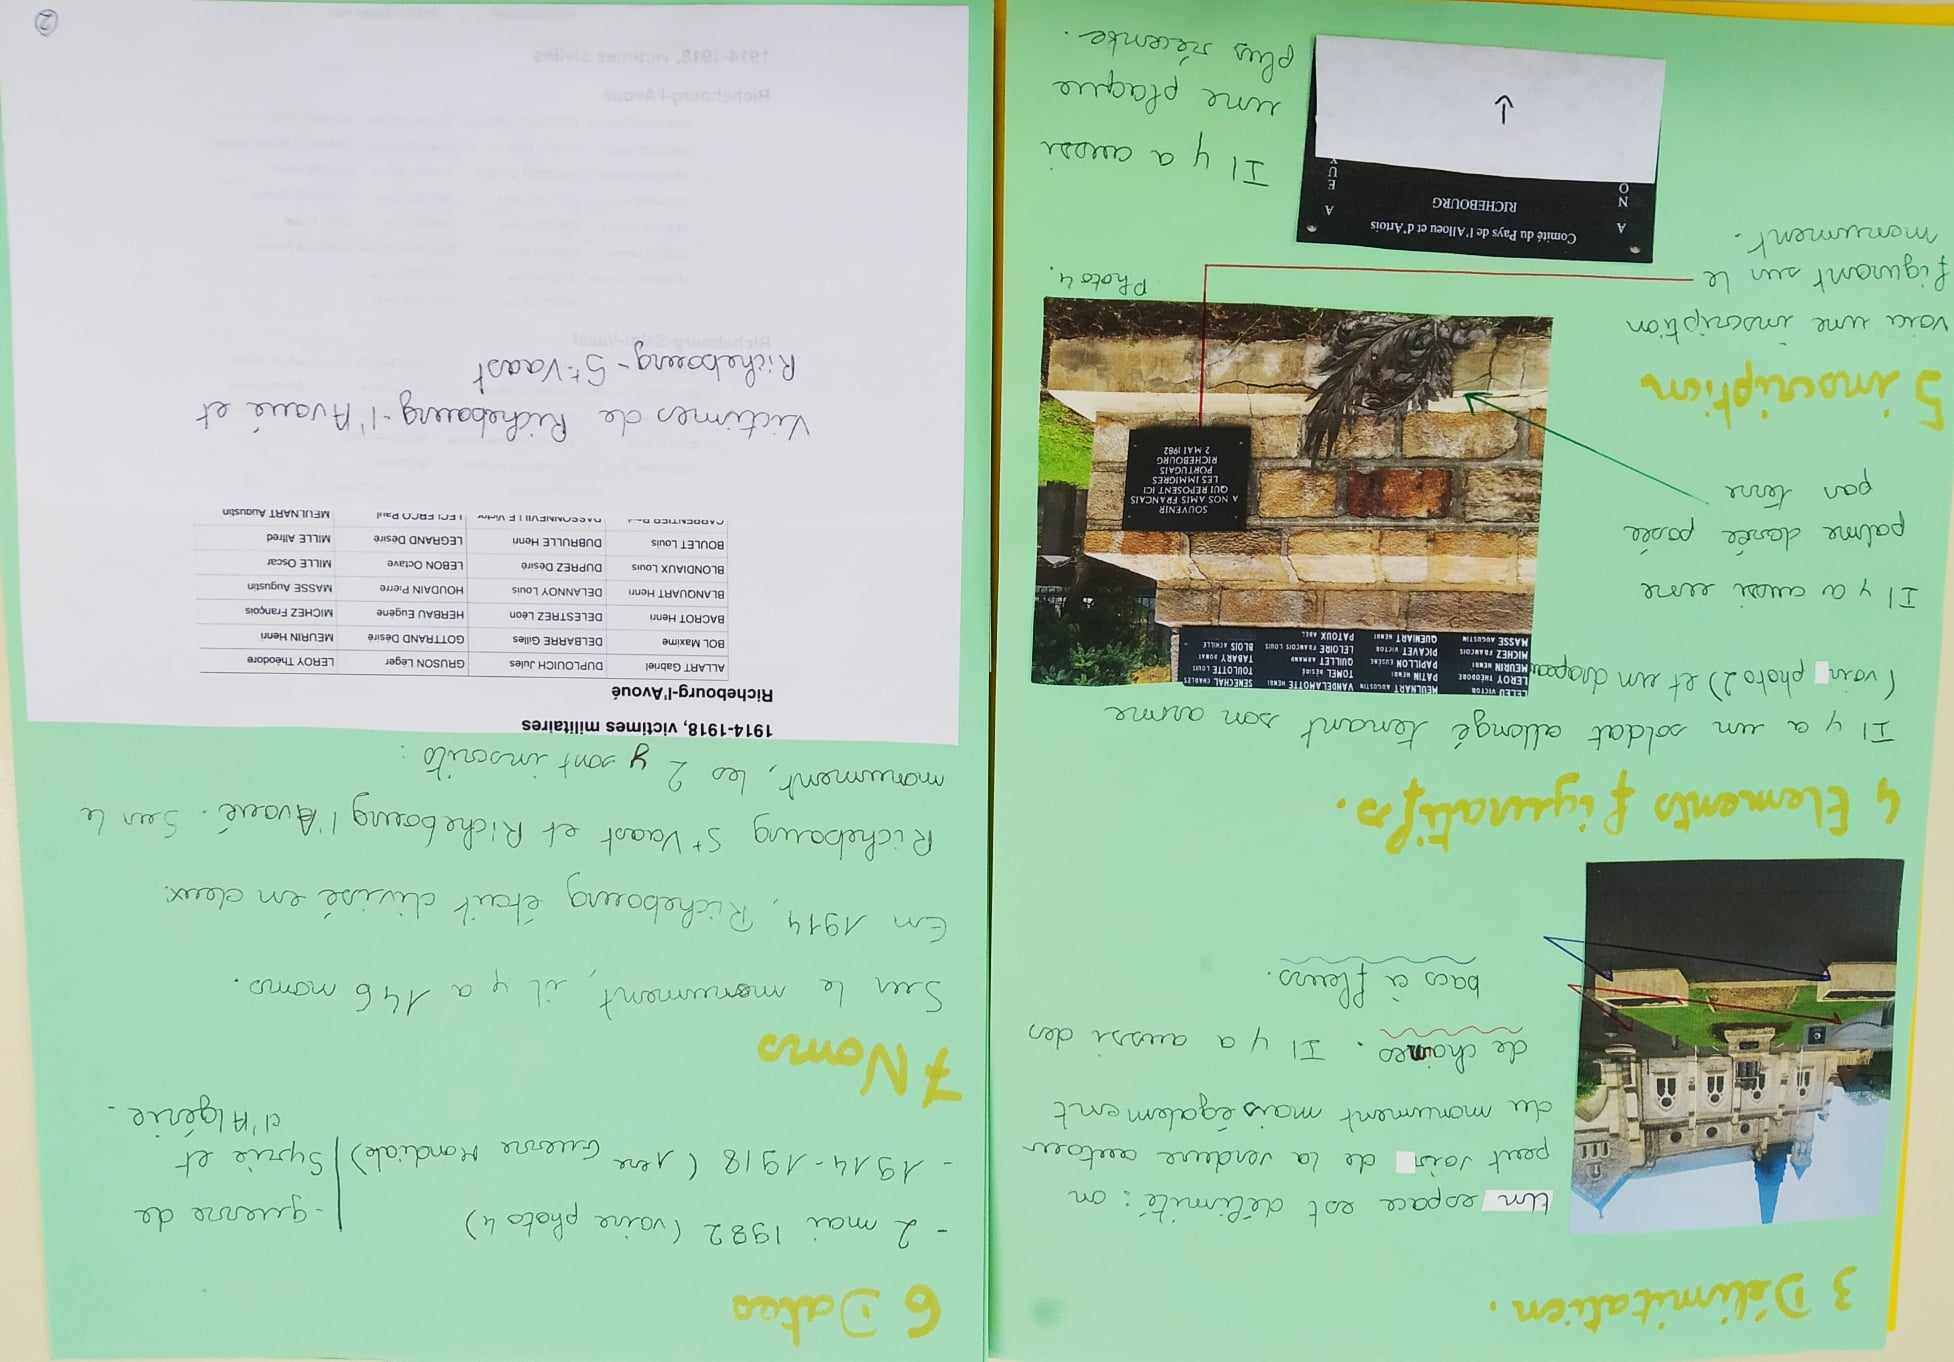 3 Délimitation.
Un espace est délimité : on
peut voir de la verdure autour
du monument mais également
de chaines. Il y a aussi des
bacs à fleurs.
4 Elements figuratifs.
Il y a un soldat allongé tenant son arme
(voir photo 2) et un drapeau
Il y a aussi une
palme dorée posée
par terre
LELEU VICTOR
LEROY THEODORE
MEURIN HENRI
MICHEZ FRANCOIS
MASSE AUGUSTIN
MEULNART AUGUSTIN
PATIN HENRI
PAPILLON EUGENE
PICAVET VICTOR
QUENIART HENRI
VANDELAMOTTE HENRI
TOMEL DESIRE
QUILLET ARMAND
LELOIRE FRANCOIS LOUIS
PATOUX ABEL
SENECHAL CHARLES
TOULOTTE LOUIS
TABARY DONAT
BLOIS ACHILLE
SOUVENIR
A NOS AMIS FRANCAIS
QUI REPOSENT ICI
LES IMMIGRES
PORTUGAIS
RICHEBOURG
2 MAI 1982
5 inscription
voici une inscription
figurant sur le
monument.
Photo 4.
Comité du Pays de l'Alloeu et d'Artois
RICHEBOURG
A
N
O
A
E
U
X
Il y a aussi
une plaque
plus récente.
6 Dates
- 2 mai 1982 (voire photo 4)
- 1914-1918 (1ere Guerre Mondiale)
- guerre de
Syrie et
d'Algérie.
7 Noms
Sur le monument, il y a 146 noms.
En 1914, Richebourg était divisé en deux
Richebourg St Vaast et Richebourg l'Avoué. Sur le
monument, les 2 y sont inscrits :
1914-1918, victimes militaires
Richebourg-l'Avoué
ALLART Gabriel DUPLOUICH Jules GRUSON Léger LEROY Théodore
BOL Maxime DELBARRE Gilles GOTTRAND Désiré MEURIN Henri
BACROT Henri DELESTREZ Léon HERBAU Eugène MICHEZ François
BLANQUART Henri DELANNOY Louis HOUDAIN Pierre MASSE Augustin
BLONDIAUX Louis DUPREZ Désiré LEBON Octave MILLE Oscar
BOULET Louis DUBRULLE Henri LEGRAND Désiré MILLE Alfred
CARPENTIER DASSONNEVILLE Victor LECLERCQ Paul MEULNART Augustin
Victimes de Richebourg-l'Avoué et
Richebourg-St Vaast
2